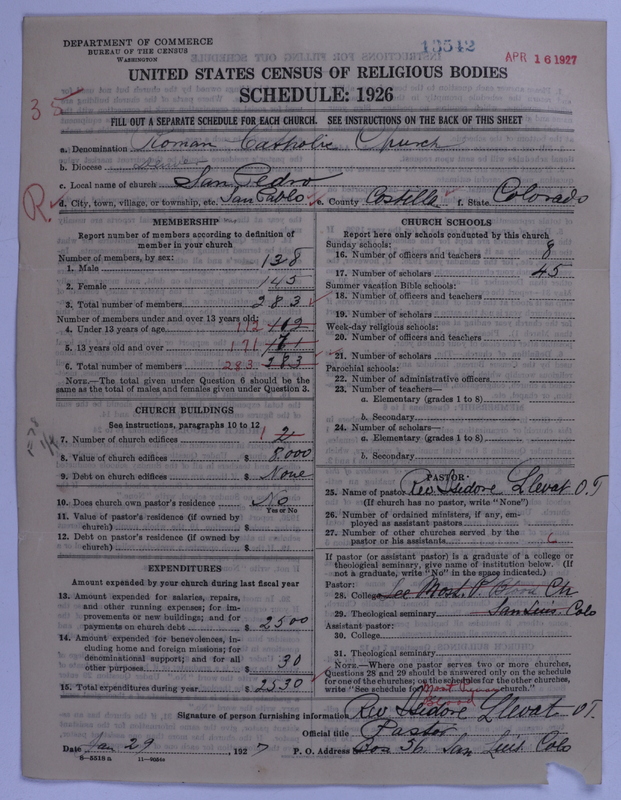 DEPARTMENT OF COMMERCE
BUREAU OF THE CENSUS
WASHINGTON
13542
APR 16 1927
UNITED STATES CENSUS OF RELIGIOUS BODIES
SCHEDULE: 1926
35
FILL OUT A SEPARATE SCHEDULE FOR EACH CHURCH. SEE INSTRUCTIONS ON THE BACK OF THIS SHEET
a. Denomination Roman Catholic Church
b. Diocese
c. Local name of church San Pedro
R.
d. City, town, village, or township, etc. San Pablo e. County Costilla f. State Colorado
MEMBERSHIP
Report number of members according to definition of
member in your church
Number of members, by sex:
1. Male 138
2. Female 145
3. Total number of members 283
Number of members under and over 13 years old:
4. Under 13 years of age 112 112
5. 13 years old and over 171 171
6. Total number of members 283 283
NOTE.—The total given under Question 6 should be the
same as the total of males and females given under Question 3.
CHURCH BUILDINGS
See instructions, paragraphs 10 to 12
7. Number of church edifices 1 2
8. Value of church edifices $ 8.000
9. Debt on church edifices $ None
10. Does church own pastor's residence No
Yes or No
11. Value of pastor's residence (if owned by
church) $
12. Debt on pastor's residence (if owned by
church) $
EXPENDITURES
Amount expended by your church during last fiscal year
13. Amount expended for salaries, repairs,
and other running expenses; for im-
provements or new buildings; and for
payments on church debt $ 2500
14. Amount expended for benevolences, in-
cluding home and foreign missions; for
denominational support; and for all
other purposes $ 30
15. Total expenditures during year $ 2530
CHURCH SCHOOLS
Report here only schools conducted by this church
Sunday schools:
16. Number of officers and teachers 8
17. Number of scholars 45
Summer vacation Bible schools:
18. Number of officers and teachers
19. Number of scholars
Week-day religious schools:
20. Number of officers and teachers
21. Number of scholars
Parochial schools:
22. Number of administrative officers
23. Number of teachers—
a. Elementary (grades 1 to 8)
b. Secondary
24. Number of scholars—
a. Elementary (grades 1 to 8)
b. Secondary
PASTOR
25. Name of pastor Rev Isidore Llevat O.T
(If church has no pastor, write "None")
26. Number of ordained ministers, if any, em-
ployed as assistant pastors
27. Number of other churches served by the
pastor or his assistants 6
If pastor (or assistant pastor) is a graduate of a college or
theological seminary, give name of institution below. (If
not a graduate, write "No" in the space indicated.)
Pastor:
28. College See Most P. Blood Ch
29. Theological seminary San Luis Colo
Assistant pastor:
30. College
31. Theological seminary
NOTE.—Where one pastor serves two or more churches,
Questions 28 and 29 should be answered only on the schedule
for one of the churches; on the schedules for the other churches,
write "See schedule for Most Precious Blood church."
Signature of person furnishing information Rev Isidore Llevat O.T.
Official title Pastor
Date Jan 29, 1927 P. O. Address Box 56 San Luis Colo
8-5518 a 11-9034a